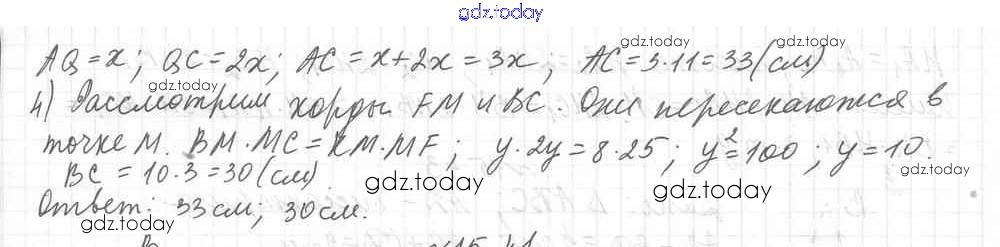 gdz.today
AQ = x; QC = 2x; AC = x + 2x = 3x; AC = 3·11 = 33 (см)
gdz.today
gdz.today
4) Рассмотрим хорды FM и BC. Они пересекаются в
точке M. BM·MC = KM·MF; y·2y = 8·25; y² = 100; y = 10.
BC = 10·3 = 30 (см).
gdz.today
gdz.today
gdz.today
Ответ: 33 см; 30 см.
gdz.today